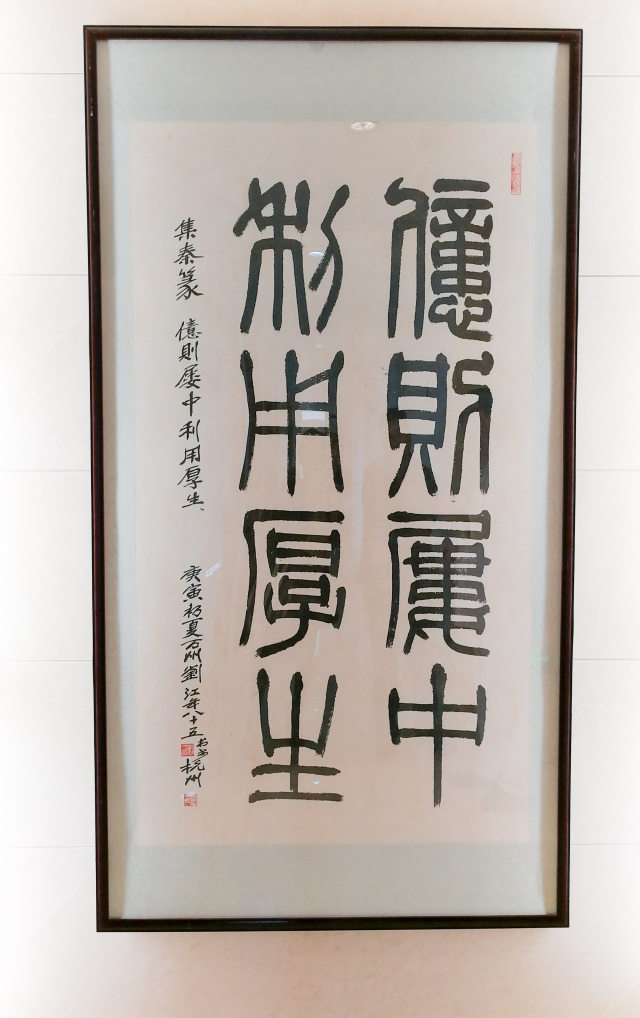 億則屢中
利用厚生
集秦篆 億則屢中利用厚生、 庚寅初夏万州劉江年八十五書於杭州